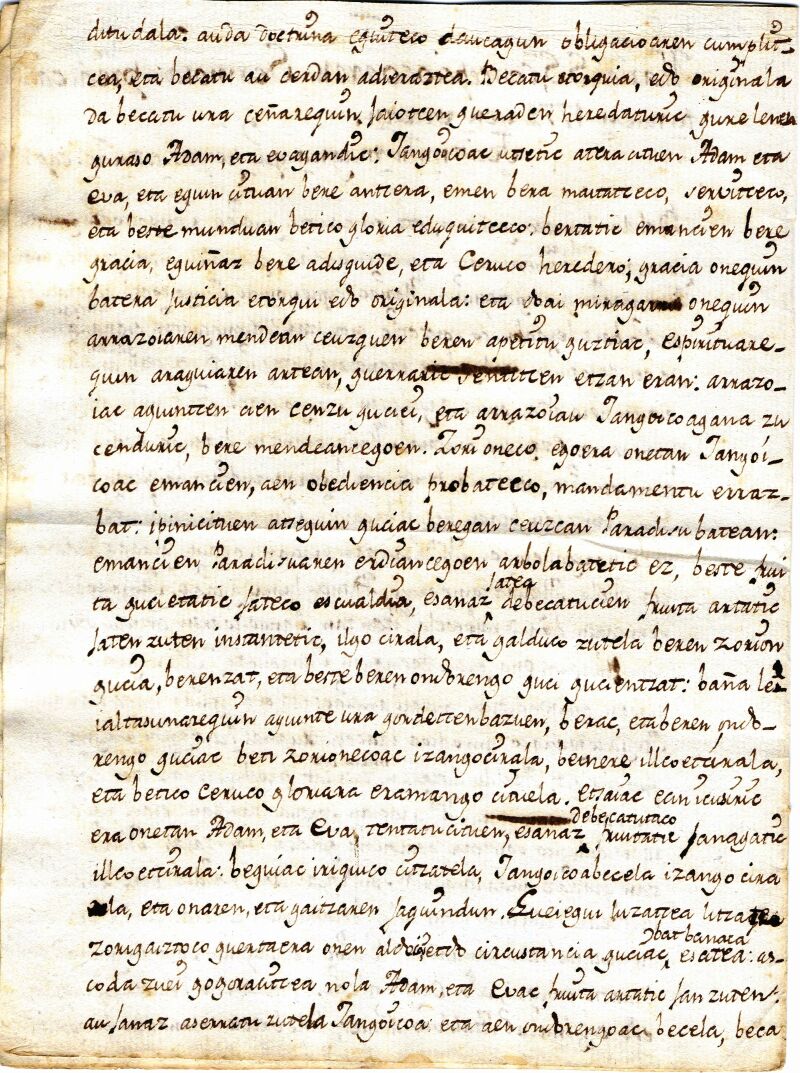 ditudala: auda doctrina eguiteco daucagun obligacioaren cumplit-
cea, eta becatu au cerdan adieraztea. Becatu etorquia, edo originala
da becatu ura ceñarequin jaiotcen gueraden heredaturic gure lenen
guraso Adam, eta evagandic: Jangoicoac utsetic atera cituen Adam eta
Eva, eta eguin cituan bere antcera, emen bera maitatceco, servitceco,
eta beste munduan betico gloria eduquitceco: bertatic eman cien bere
gracia, eguiñaz bere adisquide, eta Ceruco heredero; gracia onequin
batera justicia etorqui edo originala: eta doai miragarri onequin
arrazoiaren mendean ceuzquen beren apetitu guztiac, espirituare-
quin araguiaren artean, guerraric sentitcen etzan eran: arrazo-
iac aguintcen cien cenzu guciei, eta arrazoiau Jangoicoagana zu
cenduric, bere mendeancegoen. Zorioneco egoera onetan Jangoi-
coac emancien, aen obediencia probatceco, mandamentu erraz-
bat: ipinicituen atseguin guciac beregan ceuzcan Paradisu batean:
emancien Paradisuaren erdiancegoen arbolabatetic ez, beste frui
ta gucietatic jateco escualdia, esanaz jatea debecatucien fruita artatic
jaten zuten instantetic, ilgo cirala, eta galduco zutela beren zorion
gucia, berenzat, eta beste beren ondorengo guci gucientzat: baña le
ialtasunarequin aguinte ura gordetcen bazuen, berac, eta beren ondo-
rengo guciac beti zorionecoac izangocirala, beinere illcoetcirala,
eta betico Ceruco gloriara eramango cituela. Etsaiac ecin icusiric
era onetan Adam, eta Eva, tentatucituen, esanaz debecatutaco fruitatic janagatic
illcoetcirala: beguiac iriquico citzatela, Jangoicoabecela izango cira
la, eta onaren, eta gaitzaren jaquindun. Eueiegui luzatcea litzatea
zorigaiztoco guertaera onen aldo edo circustancia guciac bat banaca esatea: as-
coda zuei gogoracitcea nola Adam, eta Evac fruita artatic jan zuten:
au janaz aserratu zutela Jangoicoa: eta aen ondorengoac becela, beca